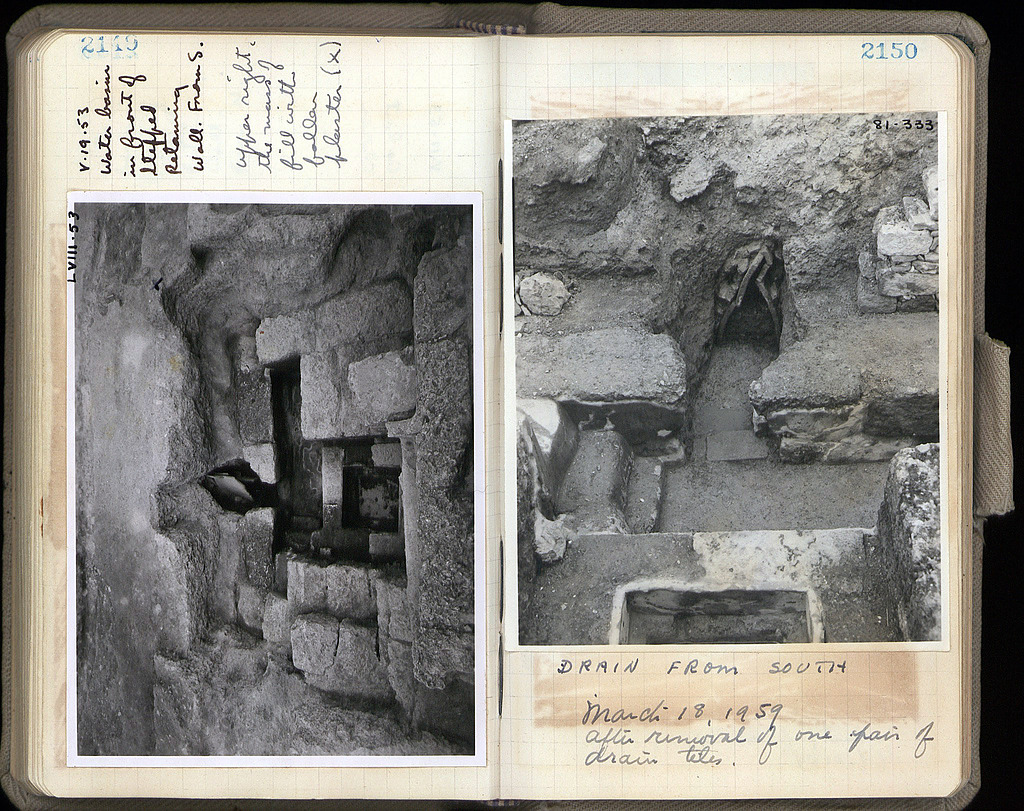 2149
V·19·53
Water basin
in front of
stepped
Retaining
Wall. From S.
upper right.
the mass of
fill with
fallen
plaster (x)
LVIII-53
x
2150
81-333
DRAIN FROM SOUTH
March 18, 1959
after removal of one pair of
drain tiles.